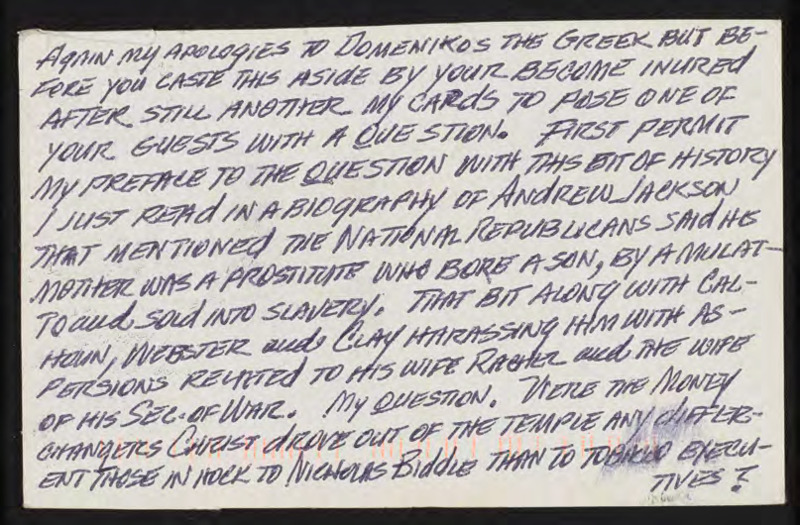 AGAIN MY APOLOGIES TO DOMENIKOS THE GREEK BUT BE-
FORE YOU CASTE THIS ASIDE BY YOUR BECOME INURED
AFTER STILL ANOTHER MY CARDS TO POSE ONE OF
YOUR GUESTS WITH A QUESTION. FIRST PERMIT
MY PREFACE TO THE QUESTION WITH THIS BIT OF HISTORY
I JUST READ IN A BIOGRAPHY OF ANDREW JACKSON
THAT MENTIONED THE NATIONAL REPUBLICANS SAID HIS
MOTHER WAS A PROSTITUTE WHO BORE A SON, BY A MULAT-
TO and SOLD INTO SLAVERY. THAT BIT ALONG WITH CAL-
HOUN, WEBSTER and CLAY HARASSING HIM WITH AS-
PERSIONS RELATED TO HIS WIFE RACHEL and THE WIFE
OF HIS SEC. OF WAR. MY QUESTION. WERE THE MONEY
CHANGERS CHRIST DROVE OUT OF THE TEMPLE ANY DIFFER-
ENT THOSE IN HOCK TO NICHOLAS BIDDLE THAN TO TOBACCO EXECU-
TIVES?